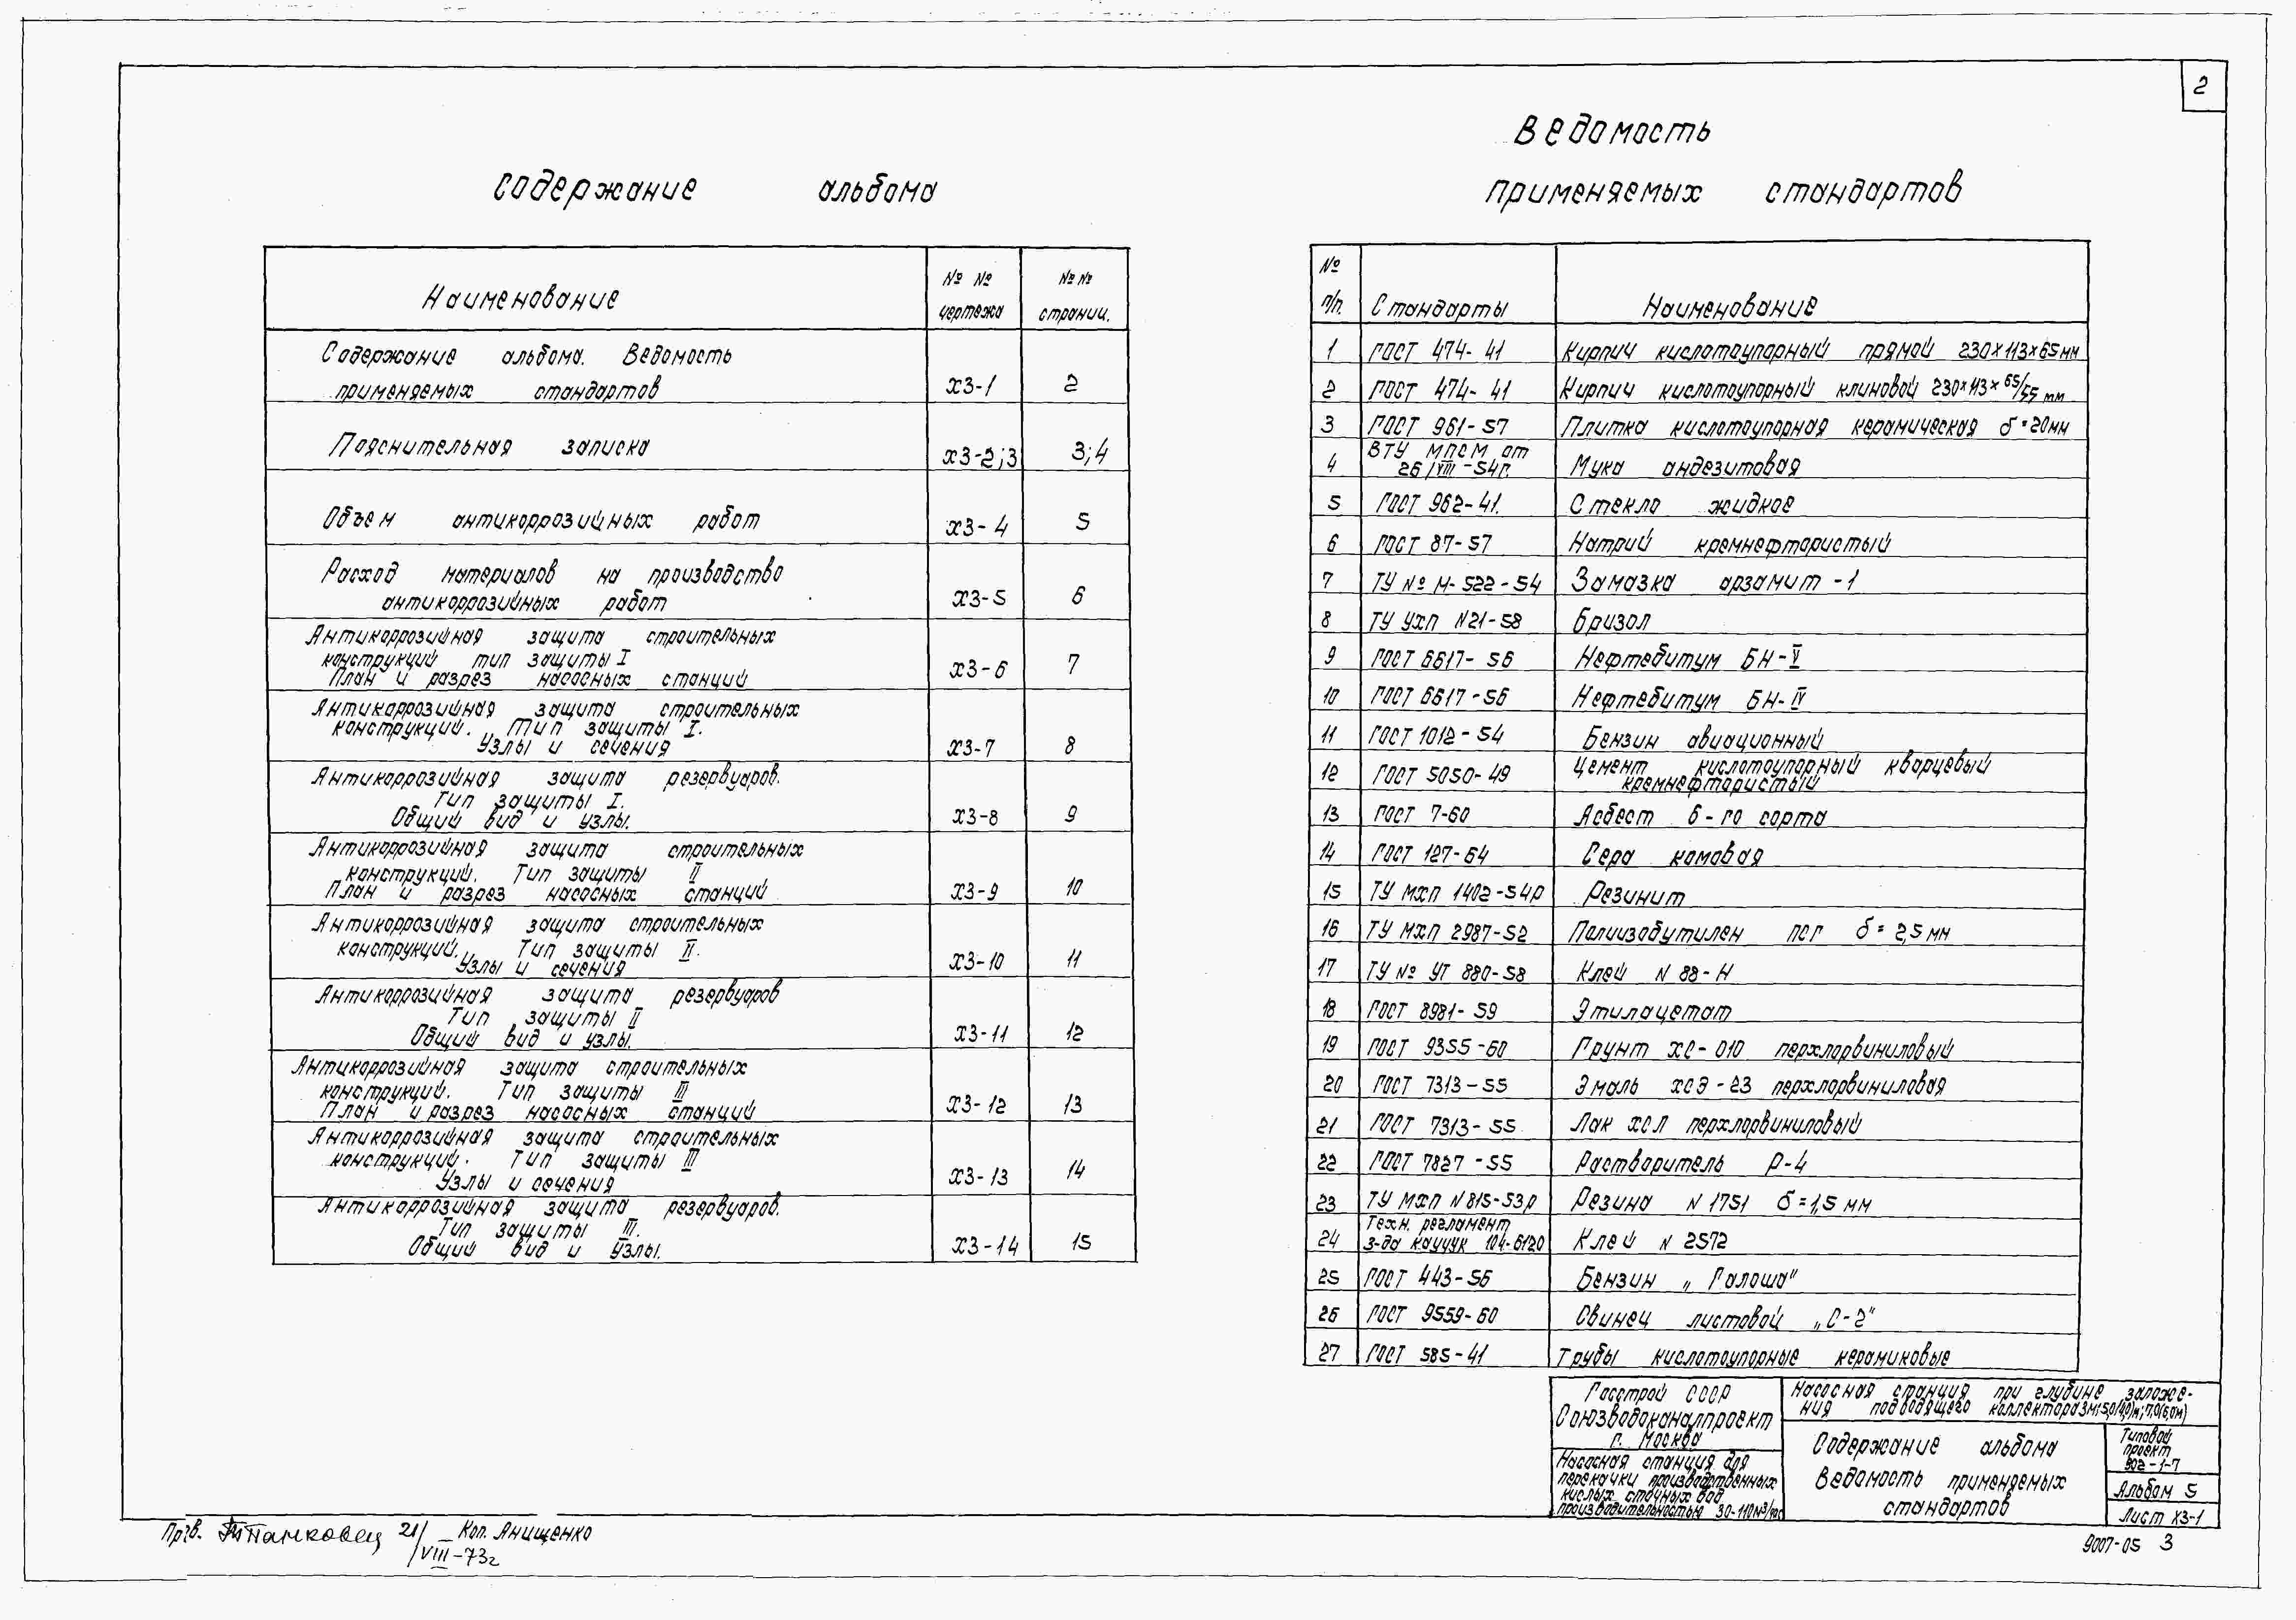 2
Содержание альбома
Наименование
№ №
чертежа
№ №
страниц.
Содержание альбома. Ведомость
применяемых стандартов
ХЗ-1
2
Пояснительная записка
ХЗ-2;3
3;4
Объем антикоррозийных работ
ХЗ-4
5
Расход материалов на производство
антикоррозийных работ
ХЗ-5
6
Антикоррозийная защита строительных
конструкций тип защиты I
План и разрез насосных станций
ХЗ-6
7
Антикоррозийная защита строительных
конструкций. Тип защиты I.
Узлы и сечения
ХЗ-7
8
Антикоррозийная защита резервуаров.
Тип защиты I.
Общий вид и узлы.
ХЗ-8
9
Антикоррозийная защита строительных
конструкций. Тип защиты II
План и разрез насосных станций
ХЗ-9
10
Антикоррозийная защита строительных
конструкций. Тип защиты II.
Узлы и сечения
ХЗ-10
11
Антикоррозийная защита резервуаров
Тип защиты II
Общий вид и узлы.
ХЗ-11
12
Антикоррозийная защита строительных
конструкций. Тип защиты III
План и разрез насосных станций
ХЗ-12
13
Антикоррозийная защита строительных
конструкций. Тип защиты III
Узлы и сечения
ХЗ-13
14
Антикоррозийная защита резервуаров.
Тип защиты III.
Общий вид и узлы.
ХЗ-14
15
Ведомость
применяемых стандартов
№
п/п.
Стандарты
Наименование
1 ГОСТ 474-41 Кирпич кислотоупорный прямой 230×113×65мм
2 ГОСТ 474-41 Кирпич кислотоупорный клиновой 230×113×65/55 мм
3 ГОСТ 961-57 Плитка кислотоупорная керамическая δ=20мм
4 ВТУ МПСМ от
26/VIII-54г. Мука андезитовая
5 ГОСТ 962-41. Стекло жидкое
6 ГОСТ 87-57 Натрий кремнефтористый
7 ТУ № М-522-54 Замазка арзамит-1
8 ТУ УХП N21-58 Бризол
9 ГОСТ 6617-56 Нефтебитум БН-V
10 ГОСТ 6617-56 Нефтебитум БН-IV
11 ГОСТ 1012-54 Бензин авиационный
12 ГОСТ 5050-49 Цемент кислотоупорный кварцевый
кремнефтористый
13 ГОСТ 7-60 Асбест 6-го сорта
14 ГОСТ 127-64 Сера комовая
15 ТУ МХП 1402-54р Резинит
16 ТУ МХП 2987-52 Полиизобутилен ПСГ δ=2,5мм
17 ТУ № УТ 880-58 Клей N 88-Н
18 ГОСТ 8981-59 Этилацетат
19 ГОСТ 9355-60 Грунт ХС-010 перхлорвиниловый
20 ГОСТ 7313-55 Эмаль ХСЭ-23 перхлорвиниловая
21 ГОСТ 7313-55 Лак ХСЛ перхлорвиниловый
22 ГОСТ 7827-55 Растворитель Р-4
23 ТУ МХП N815-53р Резина N 1751 δ=1,5 мм
24 Техн. регламент
з-да каучук 104-6120 Клей N 2572
25 ГОСТ 443-56 Бензин „Галоша"
26 ГОСТ 9559-60 Свинец листовой „С-2"
27 ГОСТ 585-41 Трубы кислотоупорные керамиковые
Госстрой СССР
Союзводоканалпроект
г. Москва
Насосная станция для
перекачки производственных
кислых сточных вод
производительностью 30-110м3/час
Насосная станция при глубине заложе-
ния подводящего коллектора 3м; 5,0(4,0)м; 7,0(6,0м)
Содержание альбома
Ведомость применяемых
стандартов
Типовой
проект
902-1-7
Альбом 5
Лист ХЗ-1
Пров. 21/VIII-73г Коп. Анищенко
9007-05 3